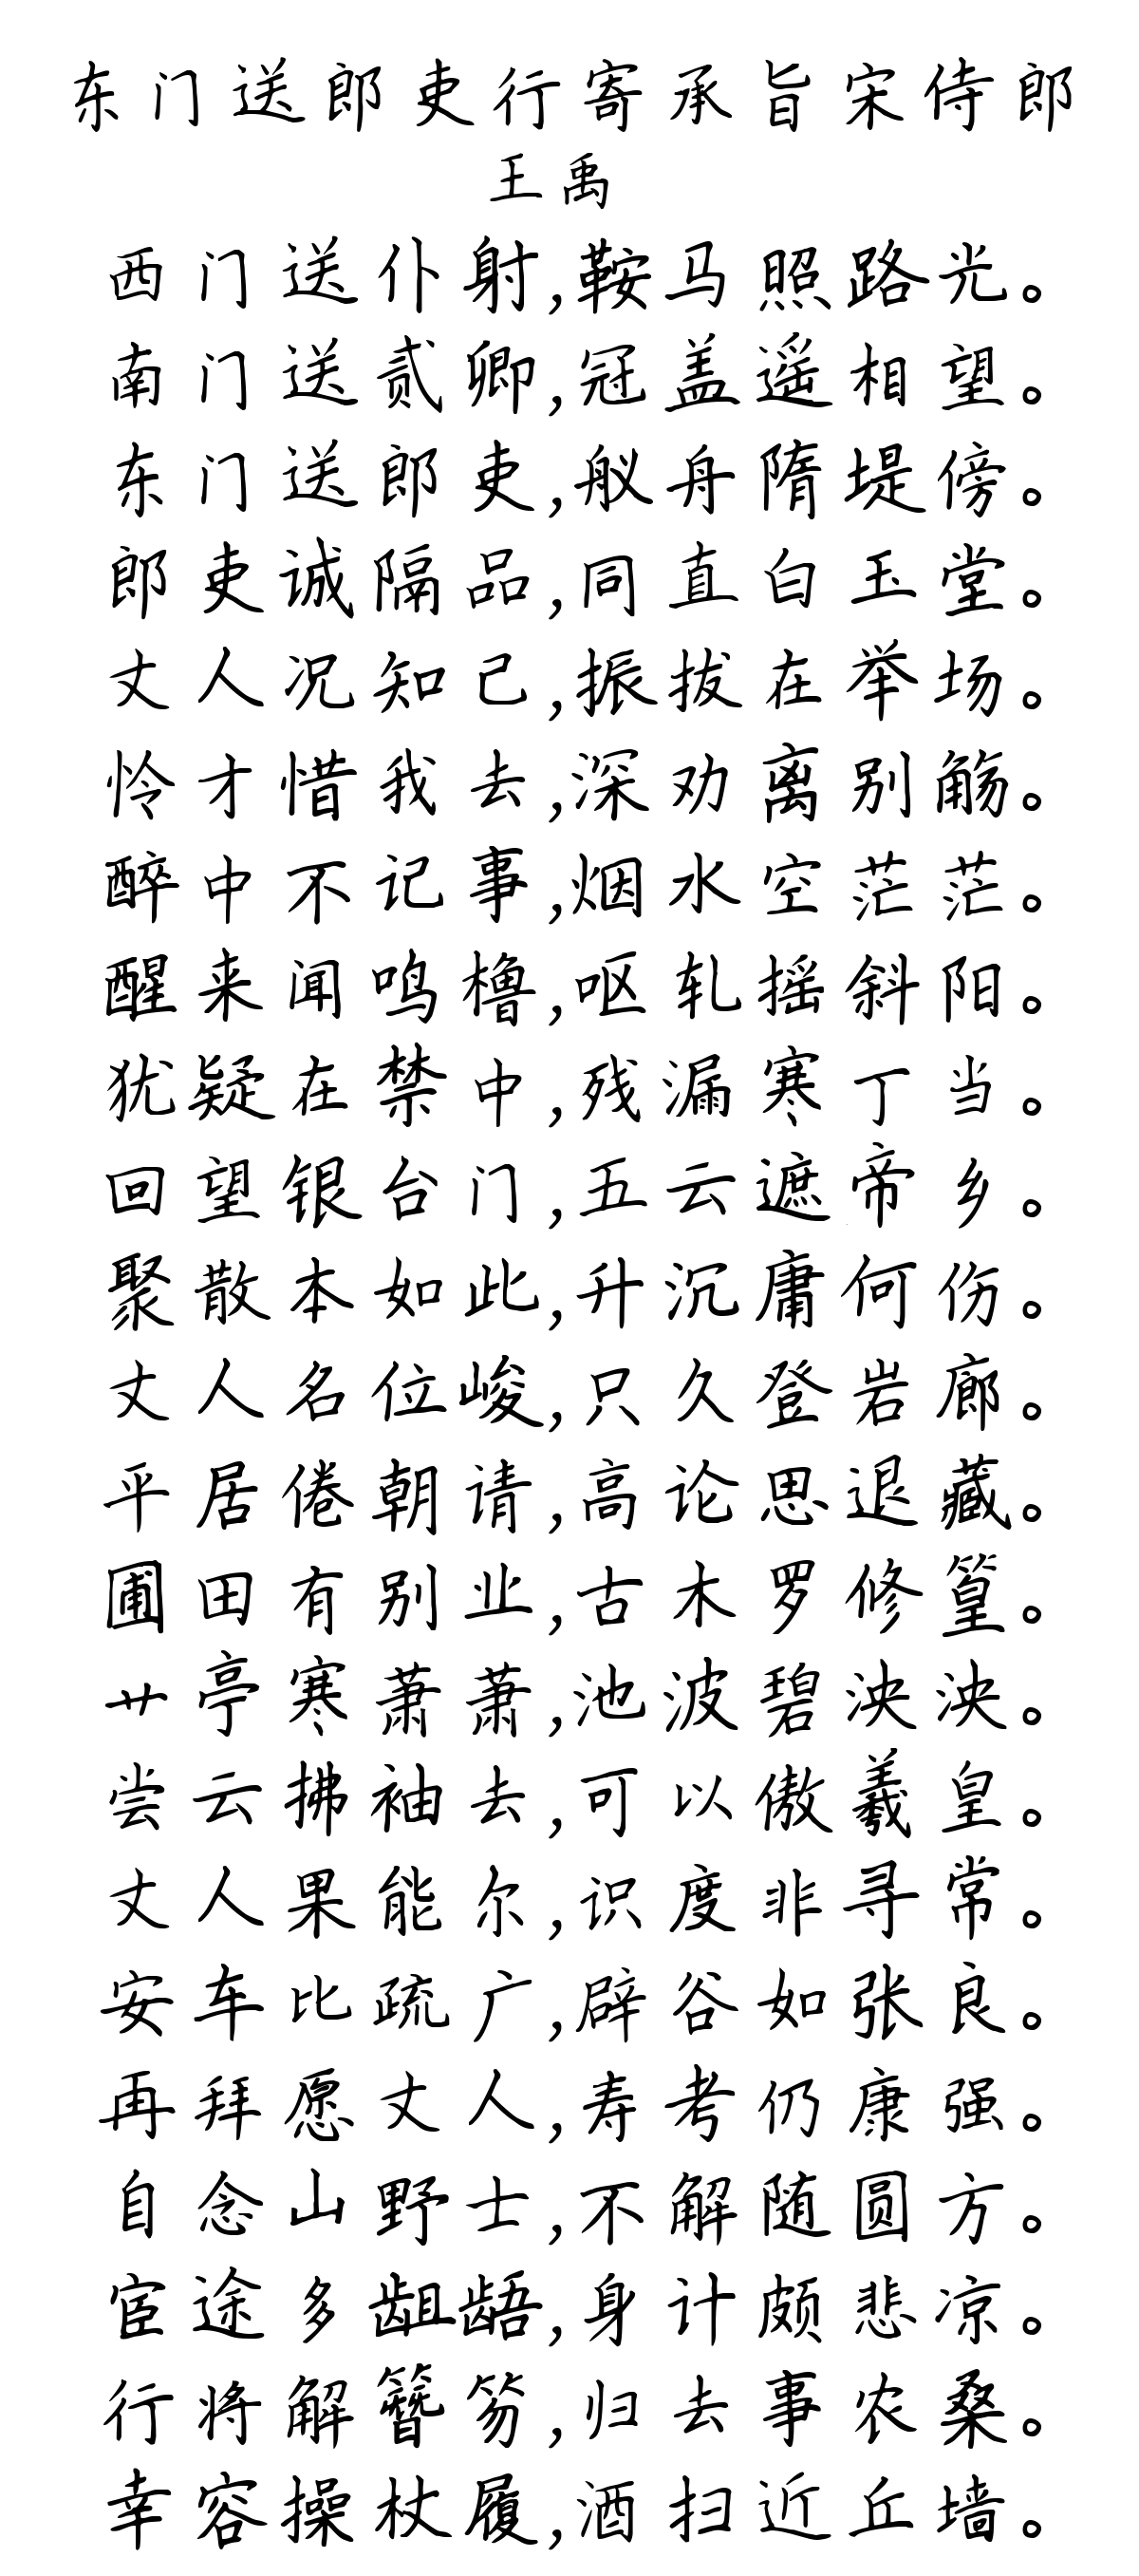 东门送郎吏行寄承旨宋侍郎
王禹
西门送仆射,鞍马照路光。
南门送贰卿,冠盖遥相望。
东门送郎吏,舣舟隋堤傍。
郎吏诚隔品,同直白玉堂。
丈人况知己,振拔在举场。
怜才惜我去,深劝离别觞。
醉中不记事,烟水空茫茫。
醒来闻鸣橹,呕轧摇斜阳。
犹疑在禁中,残漏寒丁当。
回望银台门,五云遮帝乡。
聚散本如此,升沉庸何伤。
丈人名位峻,只久登岩廊。
平居倦朝请,高论思退藏。
圃田有别业,古木罗修篁。
艹亭寒萧萧,池波碧泱泱。
尝云拂袖去,可以傲羲皇。
丈人果能尔,识度非寻常。
安车比疏广,辟谷如张良。
再拜愿丈人,寿考仍康强。
自念山野士,不解随圆方。
宦途多龃龉,身计颇悲凉。
行将解簪笏,归去事农桑。
幸容操杖履,洒扫近丘墙。